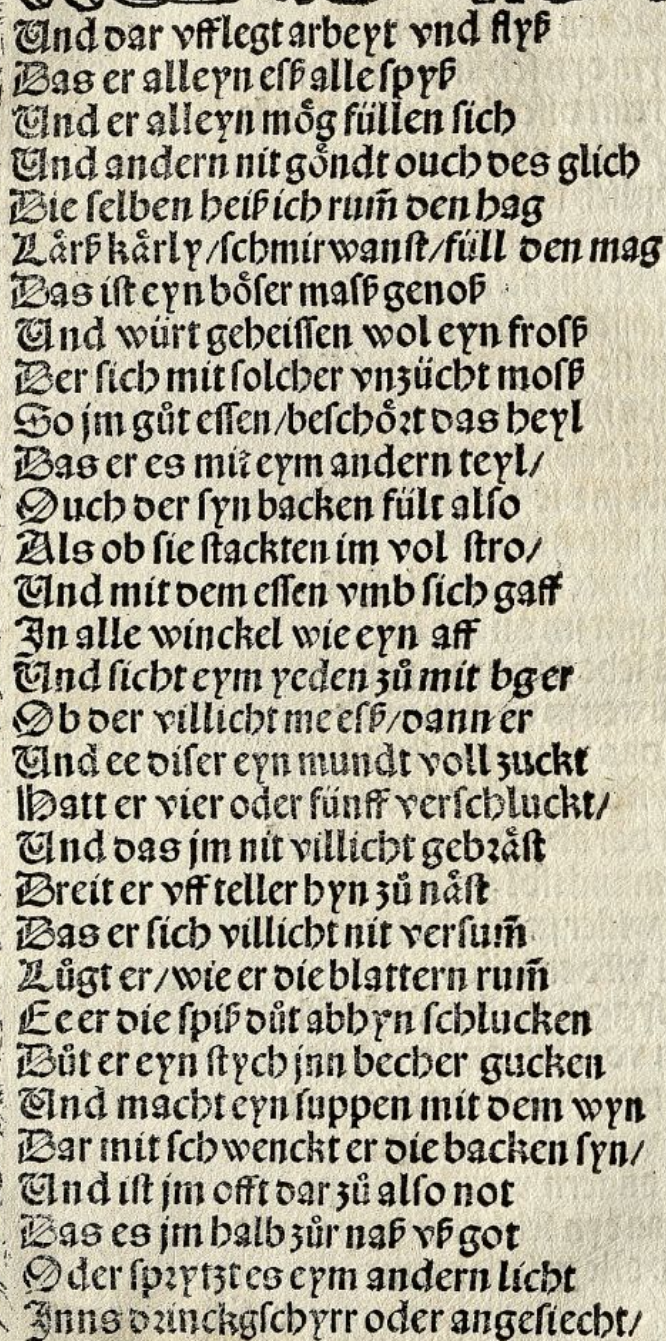 Und dar vfflegt arbeyt vnd flyß
Das er alleyn eſß alle ſpyß
Und er alleyn moͤg füllen ſich
Und andern nit goͤndt ouch des glich
Die ſelben heiß ich rum̄ den hag
Laͤrß kaͤrly/ſchmirwanſt/füll den mag
Das iſt eyn boͤſer maſß genoß
Und würt geheiſſen wol eyn froſß
Der ſich mit ſolcher vnzücht moſß
So jm guͦt eſſen/beſchoͤꝛt das heyl
Das er es mit eym andern teyl/
Ouch der ſyn backen fült alſo
Als ob ſie ſtackten im vol ſtro/
Und mit dem eſſen vmb ſich gaff
In alle winckel wie eyn aff
Und ſicht eym yeden zuͦ mit bger
Ob der villicht me eſß/dann er
Und ee diſer eyn mundt voll zuckt
Hatt er vier oder fünff verſchluckt/
Und das jm nit villicht gebꝛaͤſt
Dreit er vff teller hyn zuͦ naͤſt
Das er ſich villicht nit verſum̄
Luͦgt er/wie er die blattern rum̄
Ee er die ſpiß duͦt abhyn ſchlucken
Duͦt er eyn ſtych jnn becher gucken
Und macht eyn ſuppen mit dem wyn
Dar mit ſchwenckt er die backen ſyn/
Und iſt jm offt dar zuͦ alſo not
Das es jm halb zuͦr naß vß got
Oder ſpꝛytzt es eym andern licht
Inns dꝛinckgſchyrr oder angeſiecht/